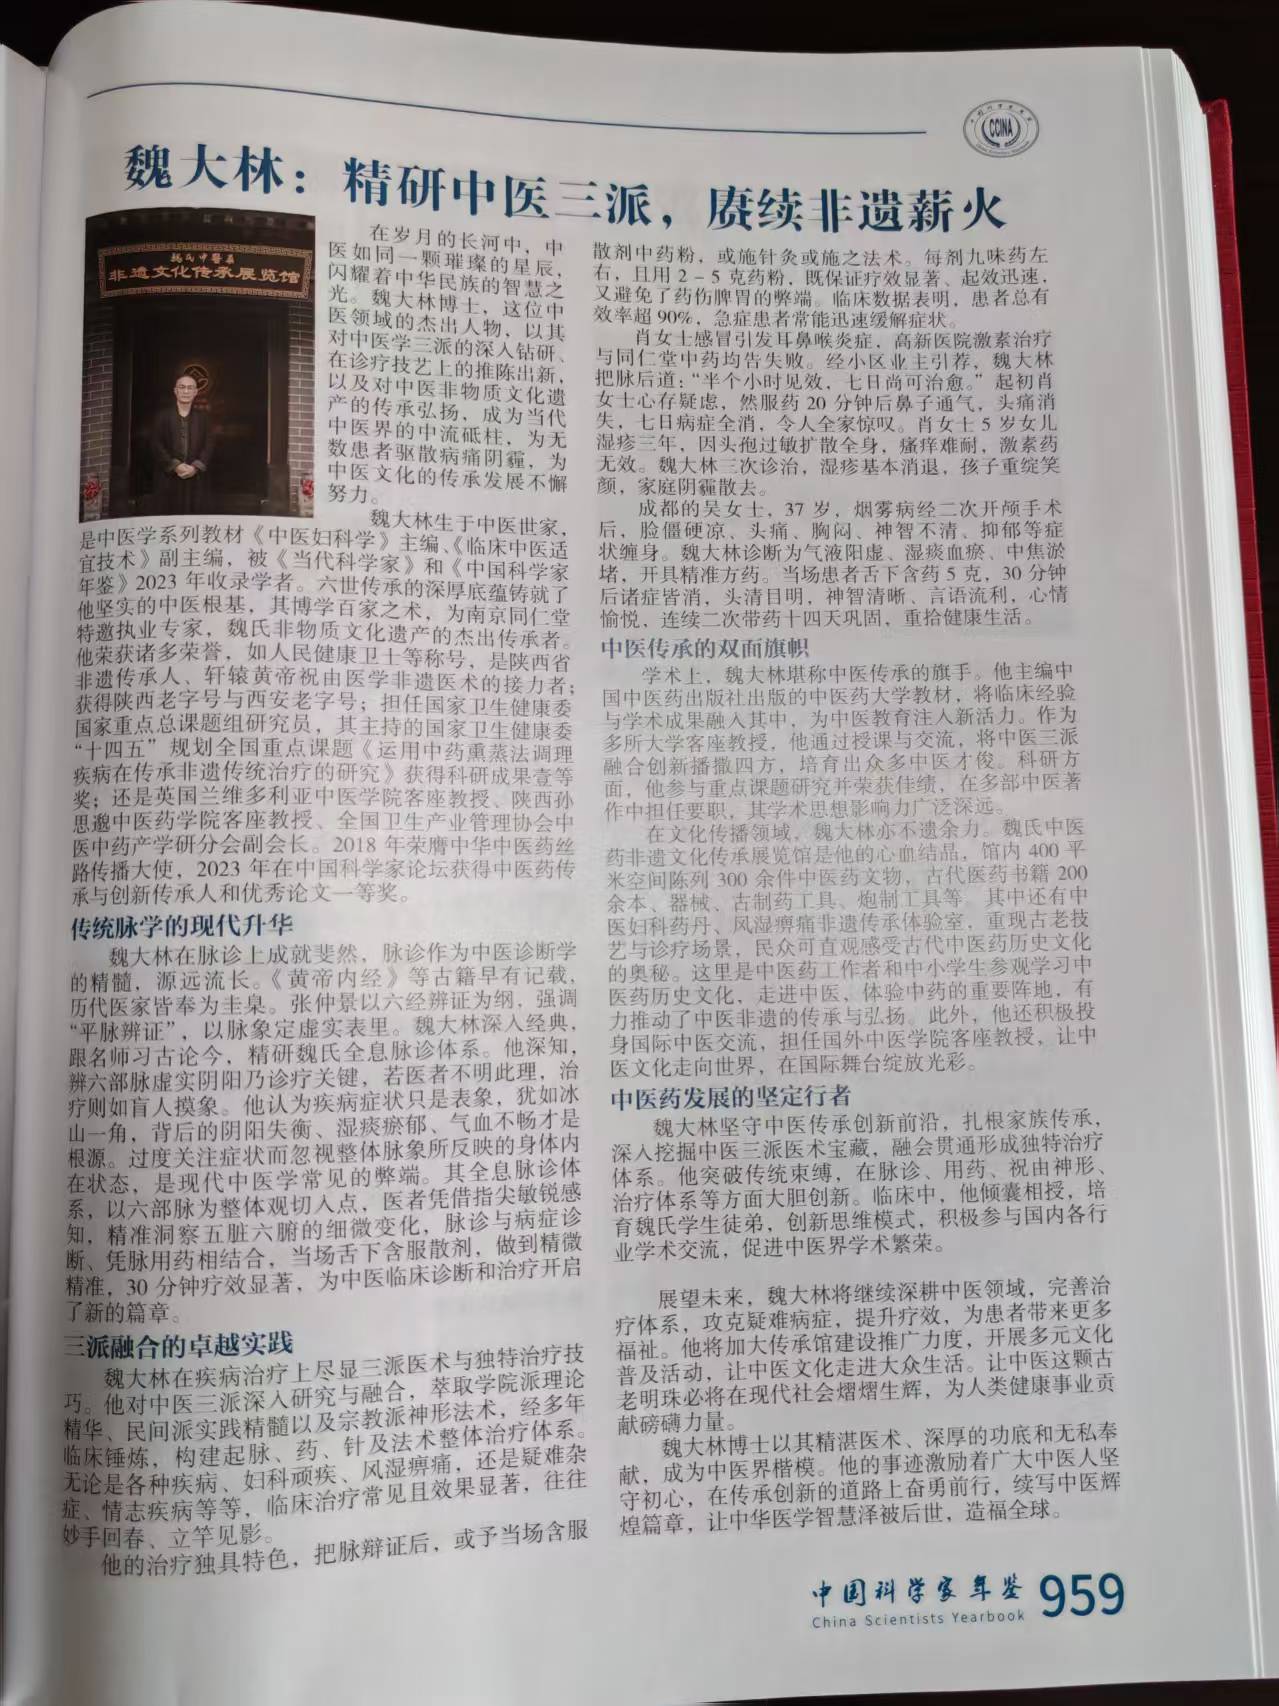 CCINA
魏大林：精研中医三派，赓续非遗薪火
魏氏中醫藥
非遗文化传承展览馆
在岁月的长河中，中
医如同一颗璀璨的星辰，
闪耀着中华民族的智慧之
光。魏大林博士，这位中
医领域的杰出人物，以其
对中医学三派的深入钻研、
在诊疗技艺上的推陈出新，
以及对中医非物质文化遗
产的传承弘扬，成为当代
中医界的中流砥柱，为无
数患者驱散病痛阴霾，为
中医文化的传承发展不懈
努力。
魏大林生于中医世家，
是中医学系列教材《中医妇科学》主编、《临床中医适
宜技术》副主编，被《当代科学家》和《中国科学家
年鉴》2023 年收录学者。六世传承的深厚底蕴铸就了
他坚实的中医根基，其博学百家之术，为南京同仁堂
特邀执业专家，魏氏非物质文化遗产的杰出传承者。
他荣获诸多荣誉，如人民健康卫士等称号，是陕西省
非遗传承人、轩辕黄帝祝由医学非遗医术的接力者；
获得陕西老字号与西安老字号；担任国家卫生健康委
国家重点总课题组研究员，其主持的国家卫生健康委
“十四五”规划全国重点课题《运用中药熏蒸法调理
疾病在传承非遗传统治疗的研究》获得科研成果壹等
奖；还是英国兰维多利亚中医学院客座教授、陕西孙
思邈中医药学院客座教授、全国卫生产业管理协会中
医中药产学研分会副会长。2018 年荣膺中华中医药丝
路传播大使，2023 年在中国科学家论坛获得中医药传
承与创新传承人和优秀论文一等奖。
传统脉学的现代升华
魏大林在脉诊上成就斐然，脉诊作为中医诊断学
的精髓，源远流长。《黄帝内经》等古籍早有记载，
历代医家皆奉为圭臬。张仲景以六经辨证为纲，强调
“平脉辨证”，以脉象定虚实表里。魏大林深入经典，
跟名师习古论今，精研魏氏全息脉诊体系。他深知，
辨六部脉虚实阴阳乃诊疗关键，若医者不明此理，治
疗则如盲人摸象。他认为疾病症状只是表象，犹如冰
山一角，背后的阴阳失衡、湿痰瘀郁、气血不畅才是
根源。过度关注症状而忽视整体脉象所反映的身体内
在状态，是现代中医学常见的弊端。其全息脉诊体
系，以六部脉为整体观切入点，医者凭借指尖敏锐感
知，精准洞察五脏六腑的细微变化，脉诊与病症诊
断、凭脉用药相结合，当场舌下含服散剂，做到精微
精准，30 分钟疗效显著，为中医临床诊断和治疗开启
了新的篇章。
三派融合的卓越实践
魏大林在疾病治疗上尽显三派医术与独特治疗技
巧。他对中医三派深入研究与融合，萃取学院派理论
精华、民间派实践精髓以及宗教派神形法术，经多年
临床锤炼，构建起脉、药、针及法术整体治疗体系。
无论是各种疾病、妇科顽疾、风湿痹痛，还是疑难杂
症、情志疾病等等，临床治疗常见且效果显著，往往
妙手回春、立竿见影。
他的治疗独具特色，把脉辩证后，或予当场含服
散剂中药粉，或施针灸或施之法术。每剂九味药左
右，且用 2－5 克药粉，既保证疗效显著、起效迅速，
又避免了药伤脾胃的弊端。临床数据表明，患者总有
效率超 90%，急症患者常能迅速缓解症状。
肖女士感冒引发耳鼻喉炎症，高新医院激素治疗
与同仁堂中药均告失败。经小区业主引荐，魏大林
把脉后道：“半个小时见效，七日尚可治愈。”起初肖
女士心存疑虑，然服药 20 分钟后鼻子通气，头痛消
失，七日病症全消，令人全家惊叹。肖女士 5 岁女儿
湿疹三年，因头孢过敏扩散全身，瘙痒难耐，激素药
无效。魏大林三次诊治，湿疹基本消退，孩子重绽笑
颜，家庭阴霾散去。
成都的吴女士，37 岁，烟雾病经二次开颅手术
后，脸僵硬凉、头痛、胸闷、神智不清、抑郁等症
状缠身。魏大林诊断为气液阳虚、湿痰血瘀、中焦淤
堵，开具精准方药。当场患者舌下含药 5 克，30 分钟
后诸症皆消，头清目明，神智清晰、言语流利，心情
愉悦，连续二次带药十四天巩固，重拾健康生活。
中医传承的双面旗帜
学术上，魏大林堪称中医传承的旗手。他主编中
国中医药出版社出版的中医药大学教材，将临床经验
与学术成果融入其中，为中医教育注入新活力。作为
多所大学客座教授，他通过授课与交流，将中医三派
融合创新播撒四方，培育出众多中医才俊。科研方
面，他参与重点课题研究并荣获佳绩，在多部中医著
作中担任要职，其学术思想影响力广泛深远。
在文化传播领域，魏大林亦不遗余力。魏氏中医
药非遗文化传承展览馆是他的心血结晶，馆内 400 平
米空间陈列 300 余件中医药文物，古代医药书籍 200
余本、器械、古制药工具、炮制工具等，其中还有中
医妇科药丹、风湿痹痛非遗传承体验室，重现古老技
艺与诊疗场景，民众可直观感受古代中医药历史文化
的奥秘。这里是中医药工作者和中小学生参观学习中
医药历史文化，走进中医、体验中药的重要阵地，有
力推动了中医非遗的传承与弘扬。此外，他还积极投
身国际中医交流，担任国外中医学院客座教授，让中
医文化走向世界，在国际舞台绽放光彩。
中医药发展的坚定行者
魏大林坚守中医传承创新前沿，扎根家族传承，
深入挖掘中医三派医术宝藏，融会贯通形成独特治疗
体系。他突破传统束缚，在脉诊、用药、祝由神形、
治疗体系等方面大胆创新。临床中，他倾囊相授，培
育魏氏学生徒弟，创新思维模式，积极参与国内各行
业学术交流，促进中医界学术繁荣。
展望未来，魏大林将继续深耕中医领域，完善治
疗体系，攻克疑难病症，提升疗效，为患者带来更多
福祉。他将加大传承馆建设推广力度，开展多元文化
普及活动，让中医文化走进大众生活。让中医这颗古
老明珠必将在现代社会熠熠生辉，为人类健康事业贡
献磅礴力量。
魏大林博士以其精湛医术、深厚的功底和无私奉
献，成为中医界楷模。他的事迹激励着广大中医人坚
守初心，在传承创新的道路上奋勇前行，续写中医辉
煌篇章，让中华医学智慧泽被后世，造福全球。
中国科学家年鉴 959
China Scientists Yearbook